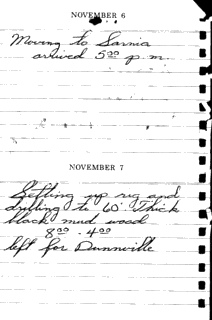 NOVEMBER 6
Moving to Sarnia
arrived 5⁰⁰ p.m.
NOVEMBER 7
Setting up rig and
drilling to 60' Thick
black mud wood
8⁰⁰ - 4⁰⁰
left for Dunnville